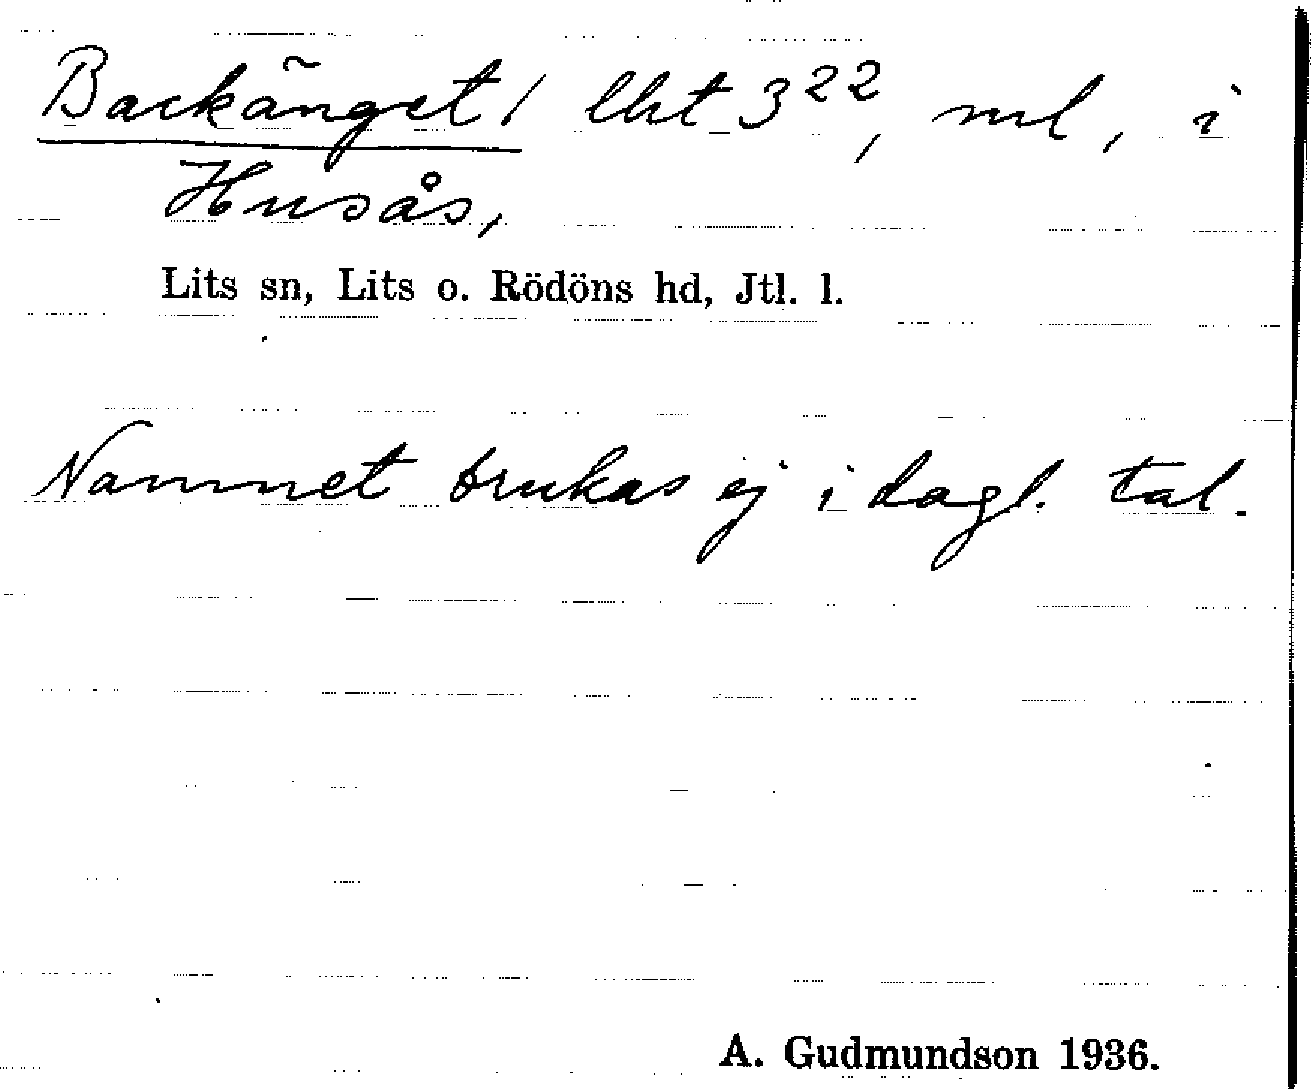 Backänget / lht 3²², ml, i
Husås,
Lits sn, Lits o. Rödöns hd, Jtl. l.
Namnet brukas ej i dagl. tal.
A. Gudmundson 1936.